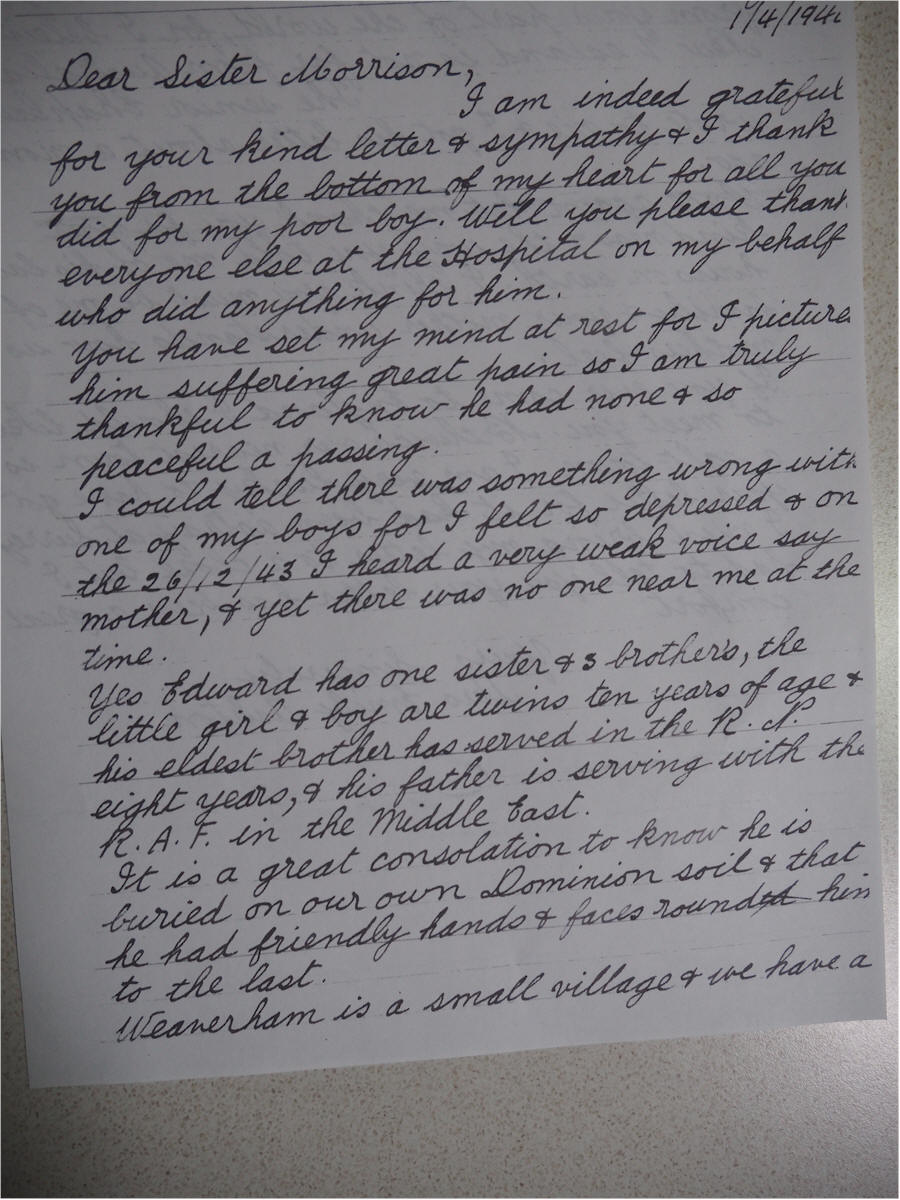 Dear Sister Morrison,
I am indeed grateful
for your kind letter & sympathy & I thank
you from the bottom of my heart for all you
did for my poor boy. Will you please thank
everyone else at the Hospital on my behalf
who did anything for him.
You have set my mind at rest for I pictured
him suffering great pain so I am truly
thankful to know he had none & so
peaceful a passing.
I could tell there was something wrong with
one of my boys for I felt so depressed & on
the 26/12/43 I heard a very weak voice say
mother, & yet there was no one near me at the
time.
Yes Edward has one sister & 3 brothers, the
little girl & boy are twins ten years of age &
his eldest brother has served in the R. N.
eight years, & his father is serving with the
R. A. F. in the Middle East.
It is a great consolation to know he is
buried on our own Dominion soil & that
he had friendly hands & faces round him
to the last.
Weaverham is a small village & we have a